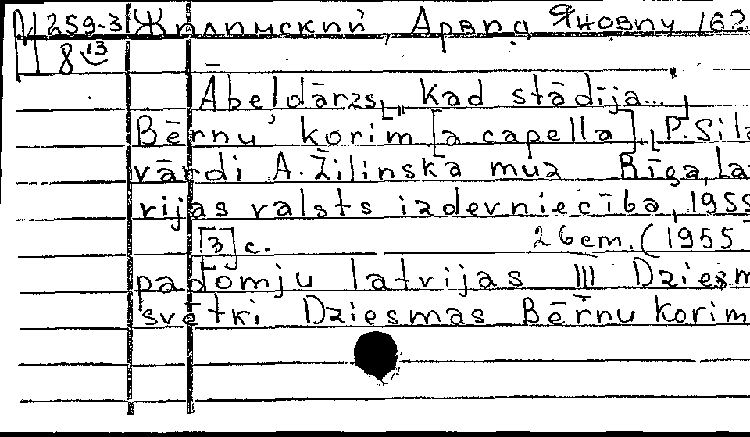 М 259-3 Жилинский, Арвид Яновну 162
8 13
Ābeļdārzs, „Kad stādīja..."]
Bērnu korim [a capella]. [P. Sila
vārdi A. Žilinska muz Rīga, La
rijas valsts izdevniecība, 1955
[3] c. 26cm. (1955
padomju latvijas III Dziesm
svētki. Dziesmas Bērnu Korim